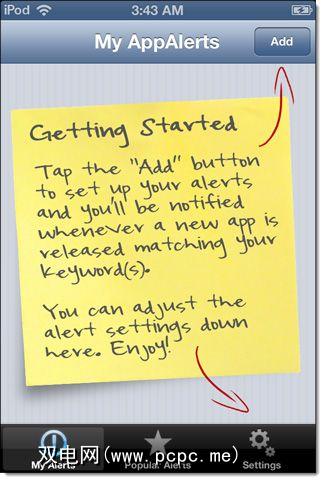 iPod 3:43 AM
My AppAlerts Add
Getting Started
Tap the "Add" button
to set up your alerts
and you'll be notified
whenever a new app is
released matching your
keyword(s).
You can adjust the
alert settings down
here. Enjoy!
My Alerts Popular Alerts Settings
双电网(www.pcpc.me)